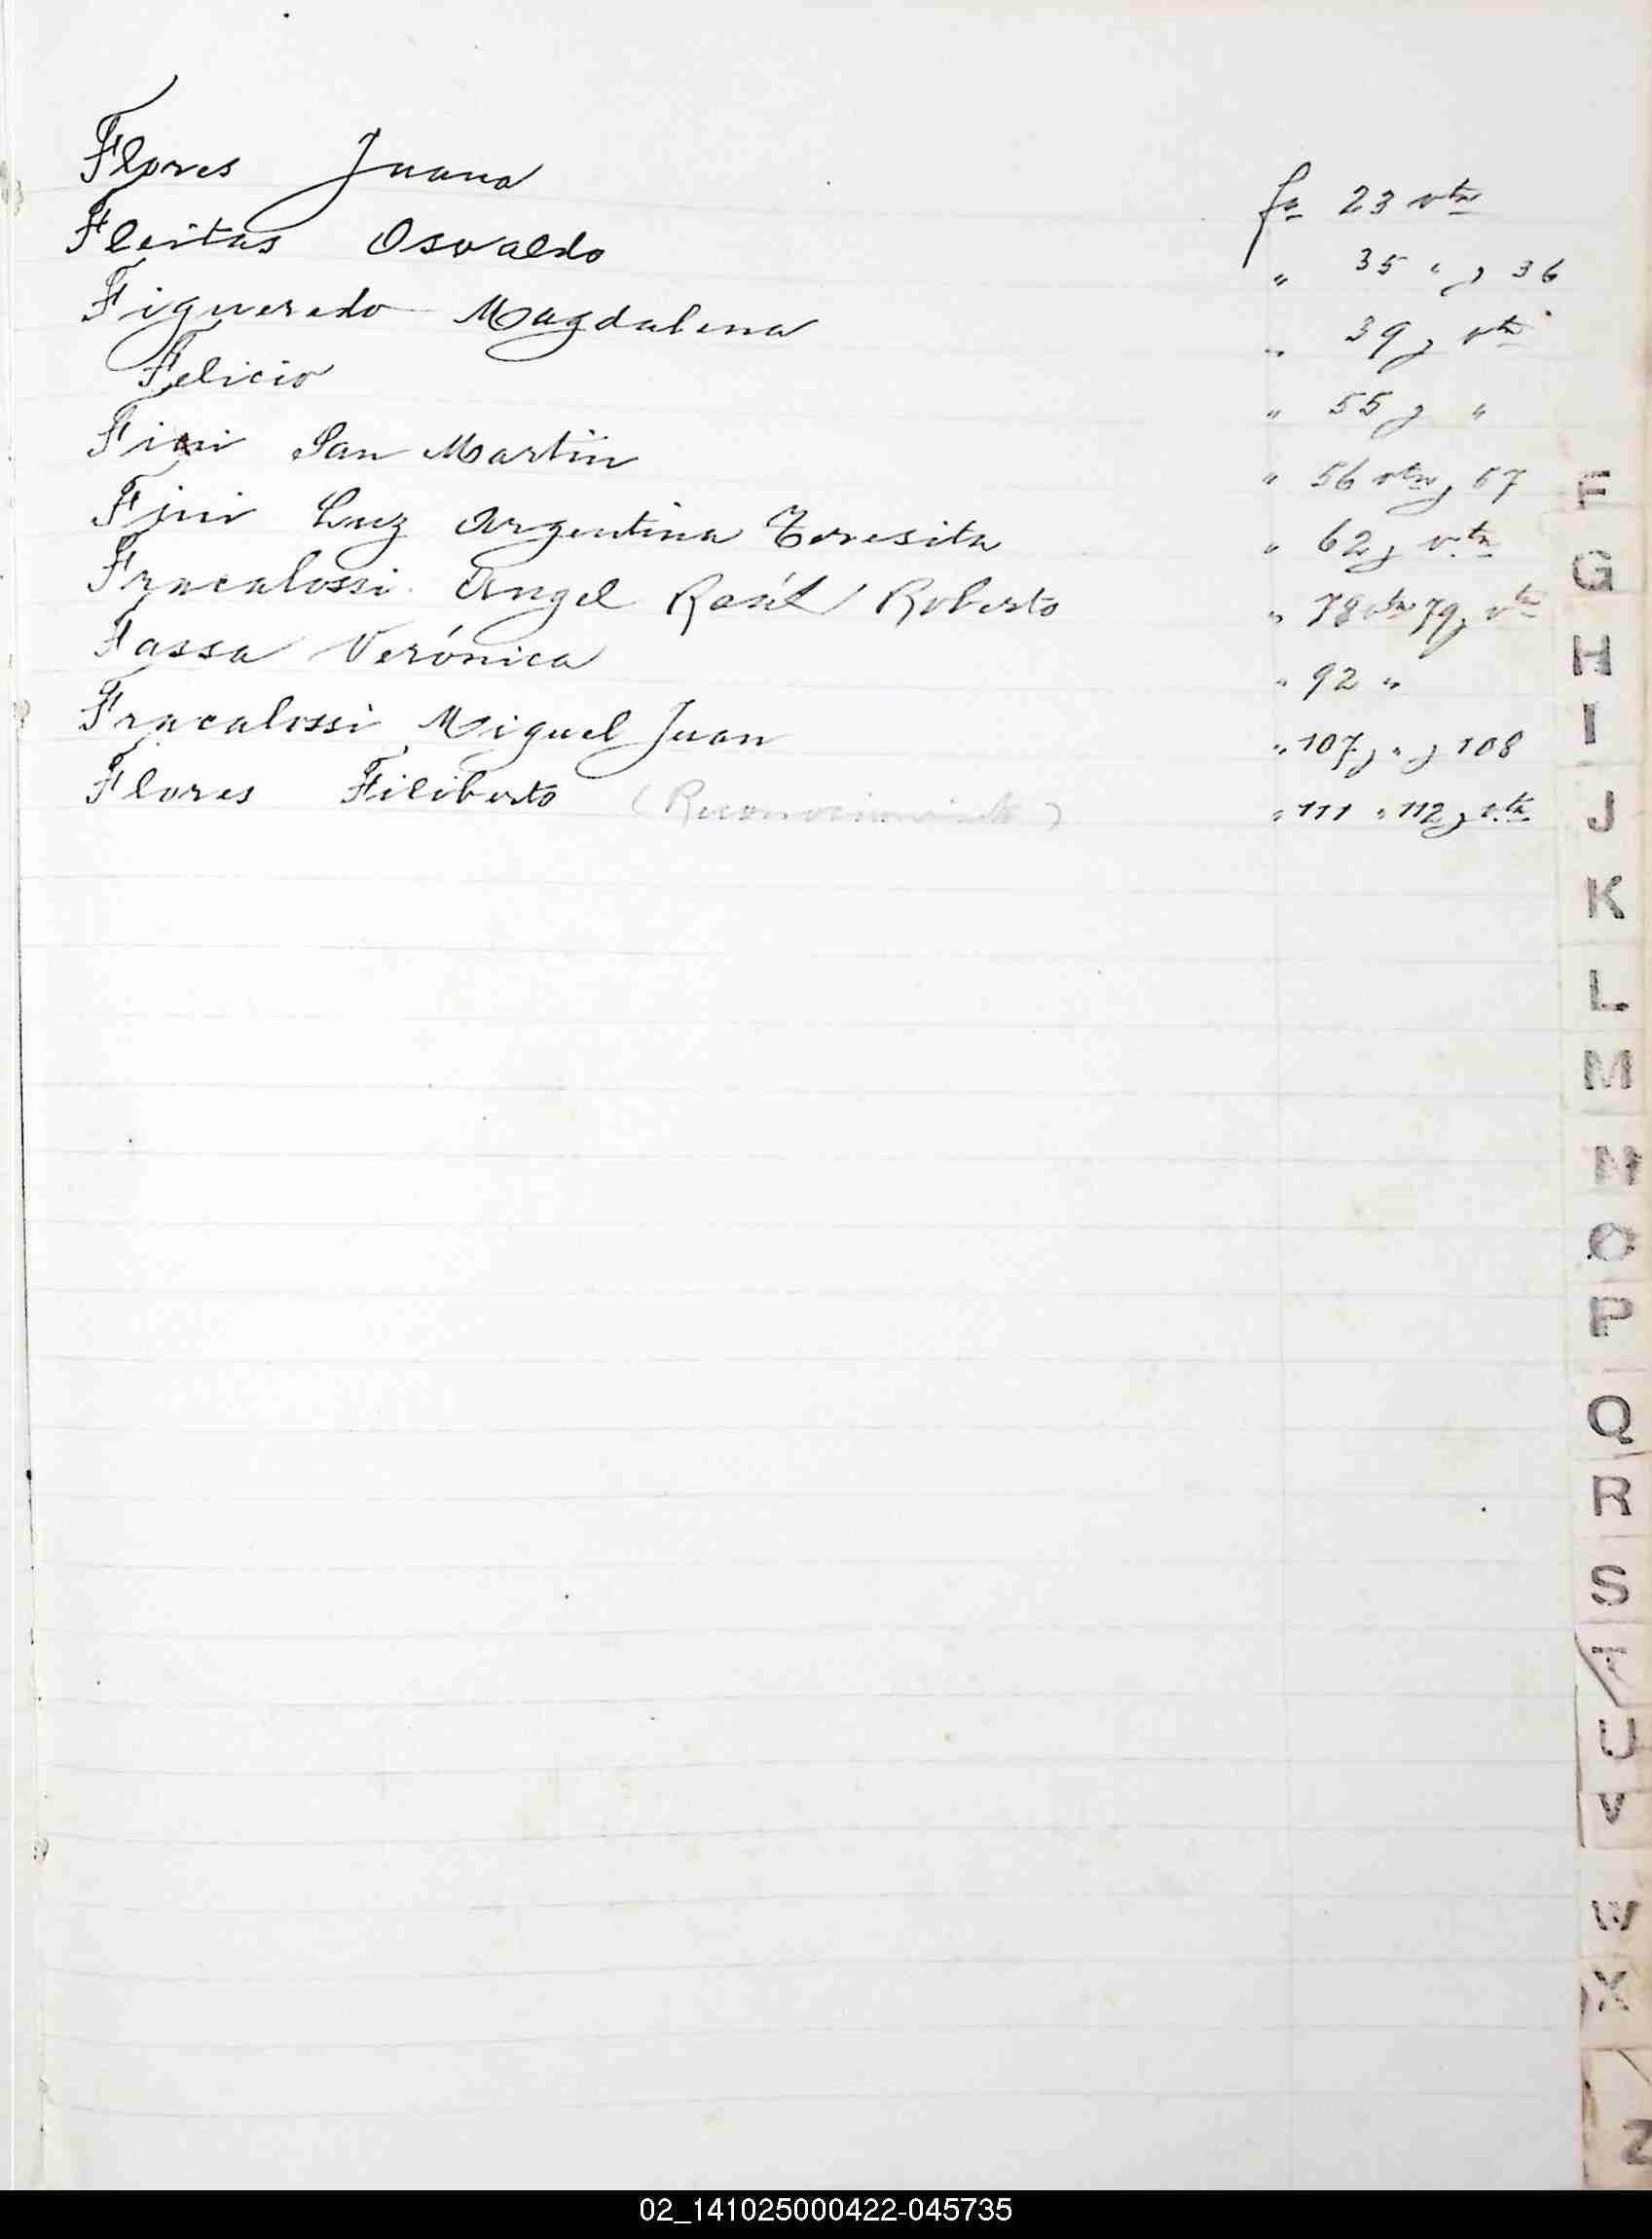 Flores Juana fs 23 vta
Fleitas Osvaldo " 35 " y 36
Figueredo Magdalena " 39 y vta
Felicio " 55 y "
Fini San Martin " 56 vta y 57
Fini Luz Argentina Teresita " 62 y vta
Fracalossi Angel Raúl Roberto " 78 vta 79 y vta
Fassa Verónica " 92 "
Fracalossi Miguel Juan " 107 y " y 108
Flores Filiberto (Reconocimiento) " 111 " 112 y vta
F
G
H
I
J
K
L
M
N
O
P
Q
R
S
T
U
V
W
X
Z
02_141025000422-045735